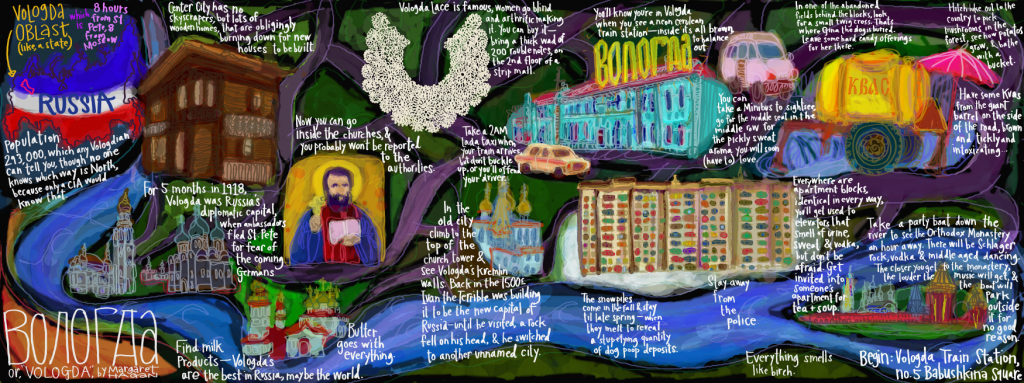 Vologda
OBlast
(like a state)
which is
8 hours
from St
Pete, 8
from
Moscow
RUSSIA
Population:
213,000, which any Vologdian
can tell you, though no one
knows which way is North,
because only a CIA would
know that.
Center City has no
skyscrapers, but lots of
wooden homes, that are obligingly
burning down for new
houses to be built.
Vologda lace is famous, women go blind
and arthritic making
it. You can buy it—
bring a thick wad of
200 rouble notes, on
the 2nd floor of a
strip mall.
You'll know you're in Vologda
when you see a neon cerulean
train station—inside it's all brown,
to balance
out.
ВОЛОГДА
In one of the abandoned
fields behind the blocks, look
for a small twig cross. That's
where Gina the dog is buried.
Leave some hard candy offerings
for her there.
Hitchhike out to the
country to pick
mushrooms in the
forest, grow potatos,
grow it, & bathe
with a
bucket.
КВАС
Have some Kvas
from the giant
barrel on the side
of the road, brown
and tickly and
intoxicating...
You can
take a Minibus to sightsee,
go for the middle seat in the
middle row for
the pickly sweat
aroma you will soon
(have to) love.
Now you can go
inside the churches, &
you probably won't be reported
to the
authorities.
Take a 2AM
Lada taxi when
your train arrives,
but don't buckle
up, or you'll offend
your driver.
For 5 months in 1918,
Vologda was Russia's
diplomatic capital,
when ambassadors
fled St. Pete
for fear of
the coming
Germans
In the
old city
climb to the
top of the
church tower &
see Vologda's Kremlin
walls. Back in the 1500s
Ivan the Terrible was building
it to be the new capital of
Russia—until he visited & a rock
fell on his head, & he switched
to another unnamed city.
Everywhere are
apartment blocks,
identical in every way,
you'll get used to
elevators that
smell of urine,
sweat & vodka,
but don't be
afraid. Get
invited into
someone's
apartment for
tea + soup.
Take a party boat down the
river to see the Orthodox Monastery
an hour away. There will be Schlager
rock, vodka & middle aged dancing.
The closer you get to the monastery
the louder the music will get, &
the boat will
Park
outside
it for
no good
reason.
The snowpiles
come in the fall & stay
til late spring—when
they melt to reveal
a stupefying quantity
of dog poop deposits.
Stay away
from
the
police
Butter
goes with
everything.
Find milk
Products—Vologda's
are the best in Russia, maybe the world.
Everything smells
like birch.
ВОЛОГДА
or, "VOLOGDA", by Margaret
HAGAN
Begin: Vologda Train Station,
no. 5 Babushkina Square